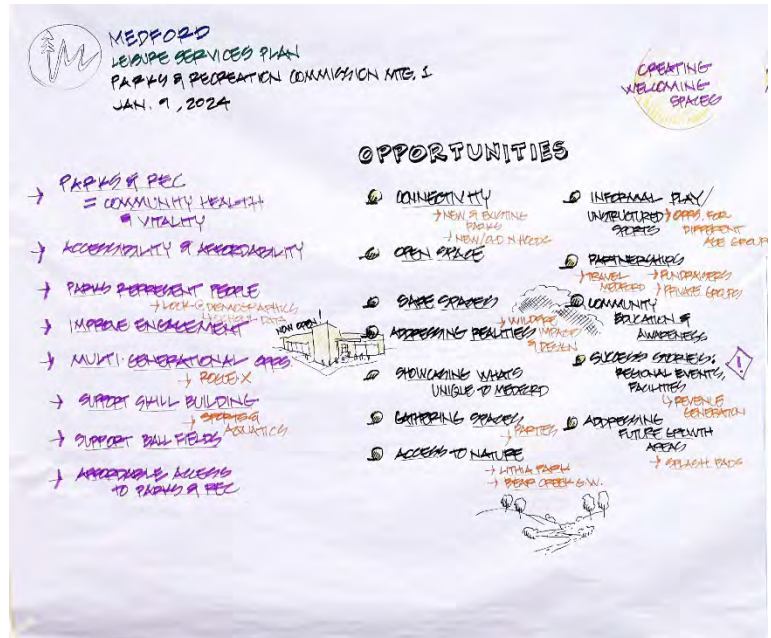 MEDFORD
LEISURE SERVICES PLAN
PARKS & RECREATION COMMISSION MTG. 1
JAN. 9, 2024
CREATING
WELCOMING
SPACES
OPPORTUNITIES
→ PARKS & REC
= COMMUNITY HEALTH
& VITALITY
→ ACCESSIBILITY & AFFORDABILITY
→ PARKS REPRESENT PEOPLE
→ LOOK @ DEMOGRAPHICS
→ IMPROVE ENGAGEMENT
→ MULTI-GENERATIONAL OPPS.
→ ROGUE X
→ SUPPORT SKILL BUILDING
→ SPORTS &
AQUATICS
→ SUPPORT BALL FIELDS
→ AFFORDABLE ACCESS
TO PARKS & REC
NOW OPEN
CONNECTIVITY
→ NEW & EXISTING
PARKS
→ NEW/OLD N'HOODS
OPEN SPACE
SAFE SPACES
ADDRESSING REALITIES
→ WILDFIRE
IMPACTS
& DESIGN
SHOWCASING WHATS
UNIQUE TO MEDFORD
GATHERING SPACES
→ PARTIES
ACCESS TO NATURE
→ LITHIA PARK
→ BEAR CREEK G.W.
INFORMAL PLAY/
UNSTRUCTURED
SPORTS
→ OPPS. FOR
DIFFERENT
AGE GROUPS
PARTNERSHIPS
→ TRAVEL
MEDFORD
→ FUNDRAISERS
→ PRIVATE GROUPS
COMMUNITY
EDUCATION &
AWARENESS
SUCCESS STORIES:
REGIONAL EVENTS,
FACILITIES
!
→ REVENUE
GENERATION
ADDRESSING
FUTURE GROWTH
AREAS
→ SPLASH PADS